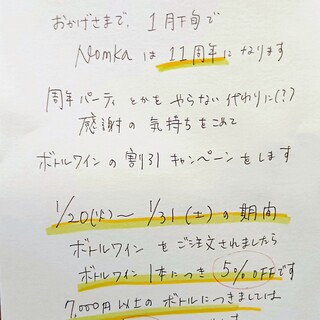 おかげさまで、1月下旬で
Nomka は 11周年になります
周年パーティとかをやらない代わりに(?)
感謝の気持ちをこめて
ボトルワインの割引キャンペーンをします
1/20(火)～1/31(土)の期間
ボトルワインをご注文されましたら
ボトルワイン1本につき5%OFFです
7,000円以上のボトルにつきましては